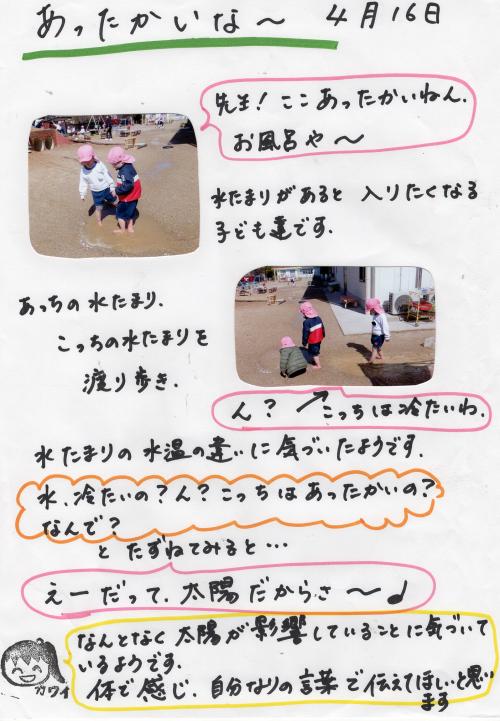 あったかいな〜 4月16日
先生！ここあったかいねん。
お風呂や〜
水たまりがあると 入りたくなる
子ども達です。
あっちの水たまり。
こっちの水たまりを
渡り歩き。
ん？ こっちは冷たいわ。
水たまりの水温の違いに気づいたようです。
水、冷たいの？ん？こっちはあったかいの？
なんで？
とたずねてみると…
えーだって、太陽だからさ〜♩
なんとなく太陽が影響していることに気づいて
いるようです。
体で感じ、自分なりの言葉で伝えてほしいと思い
ます
カワイ